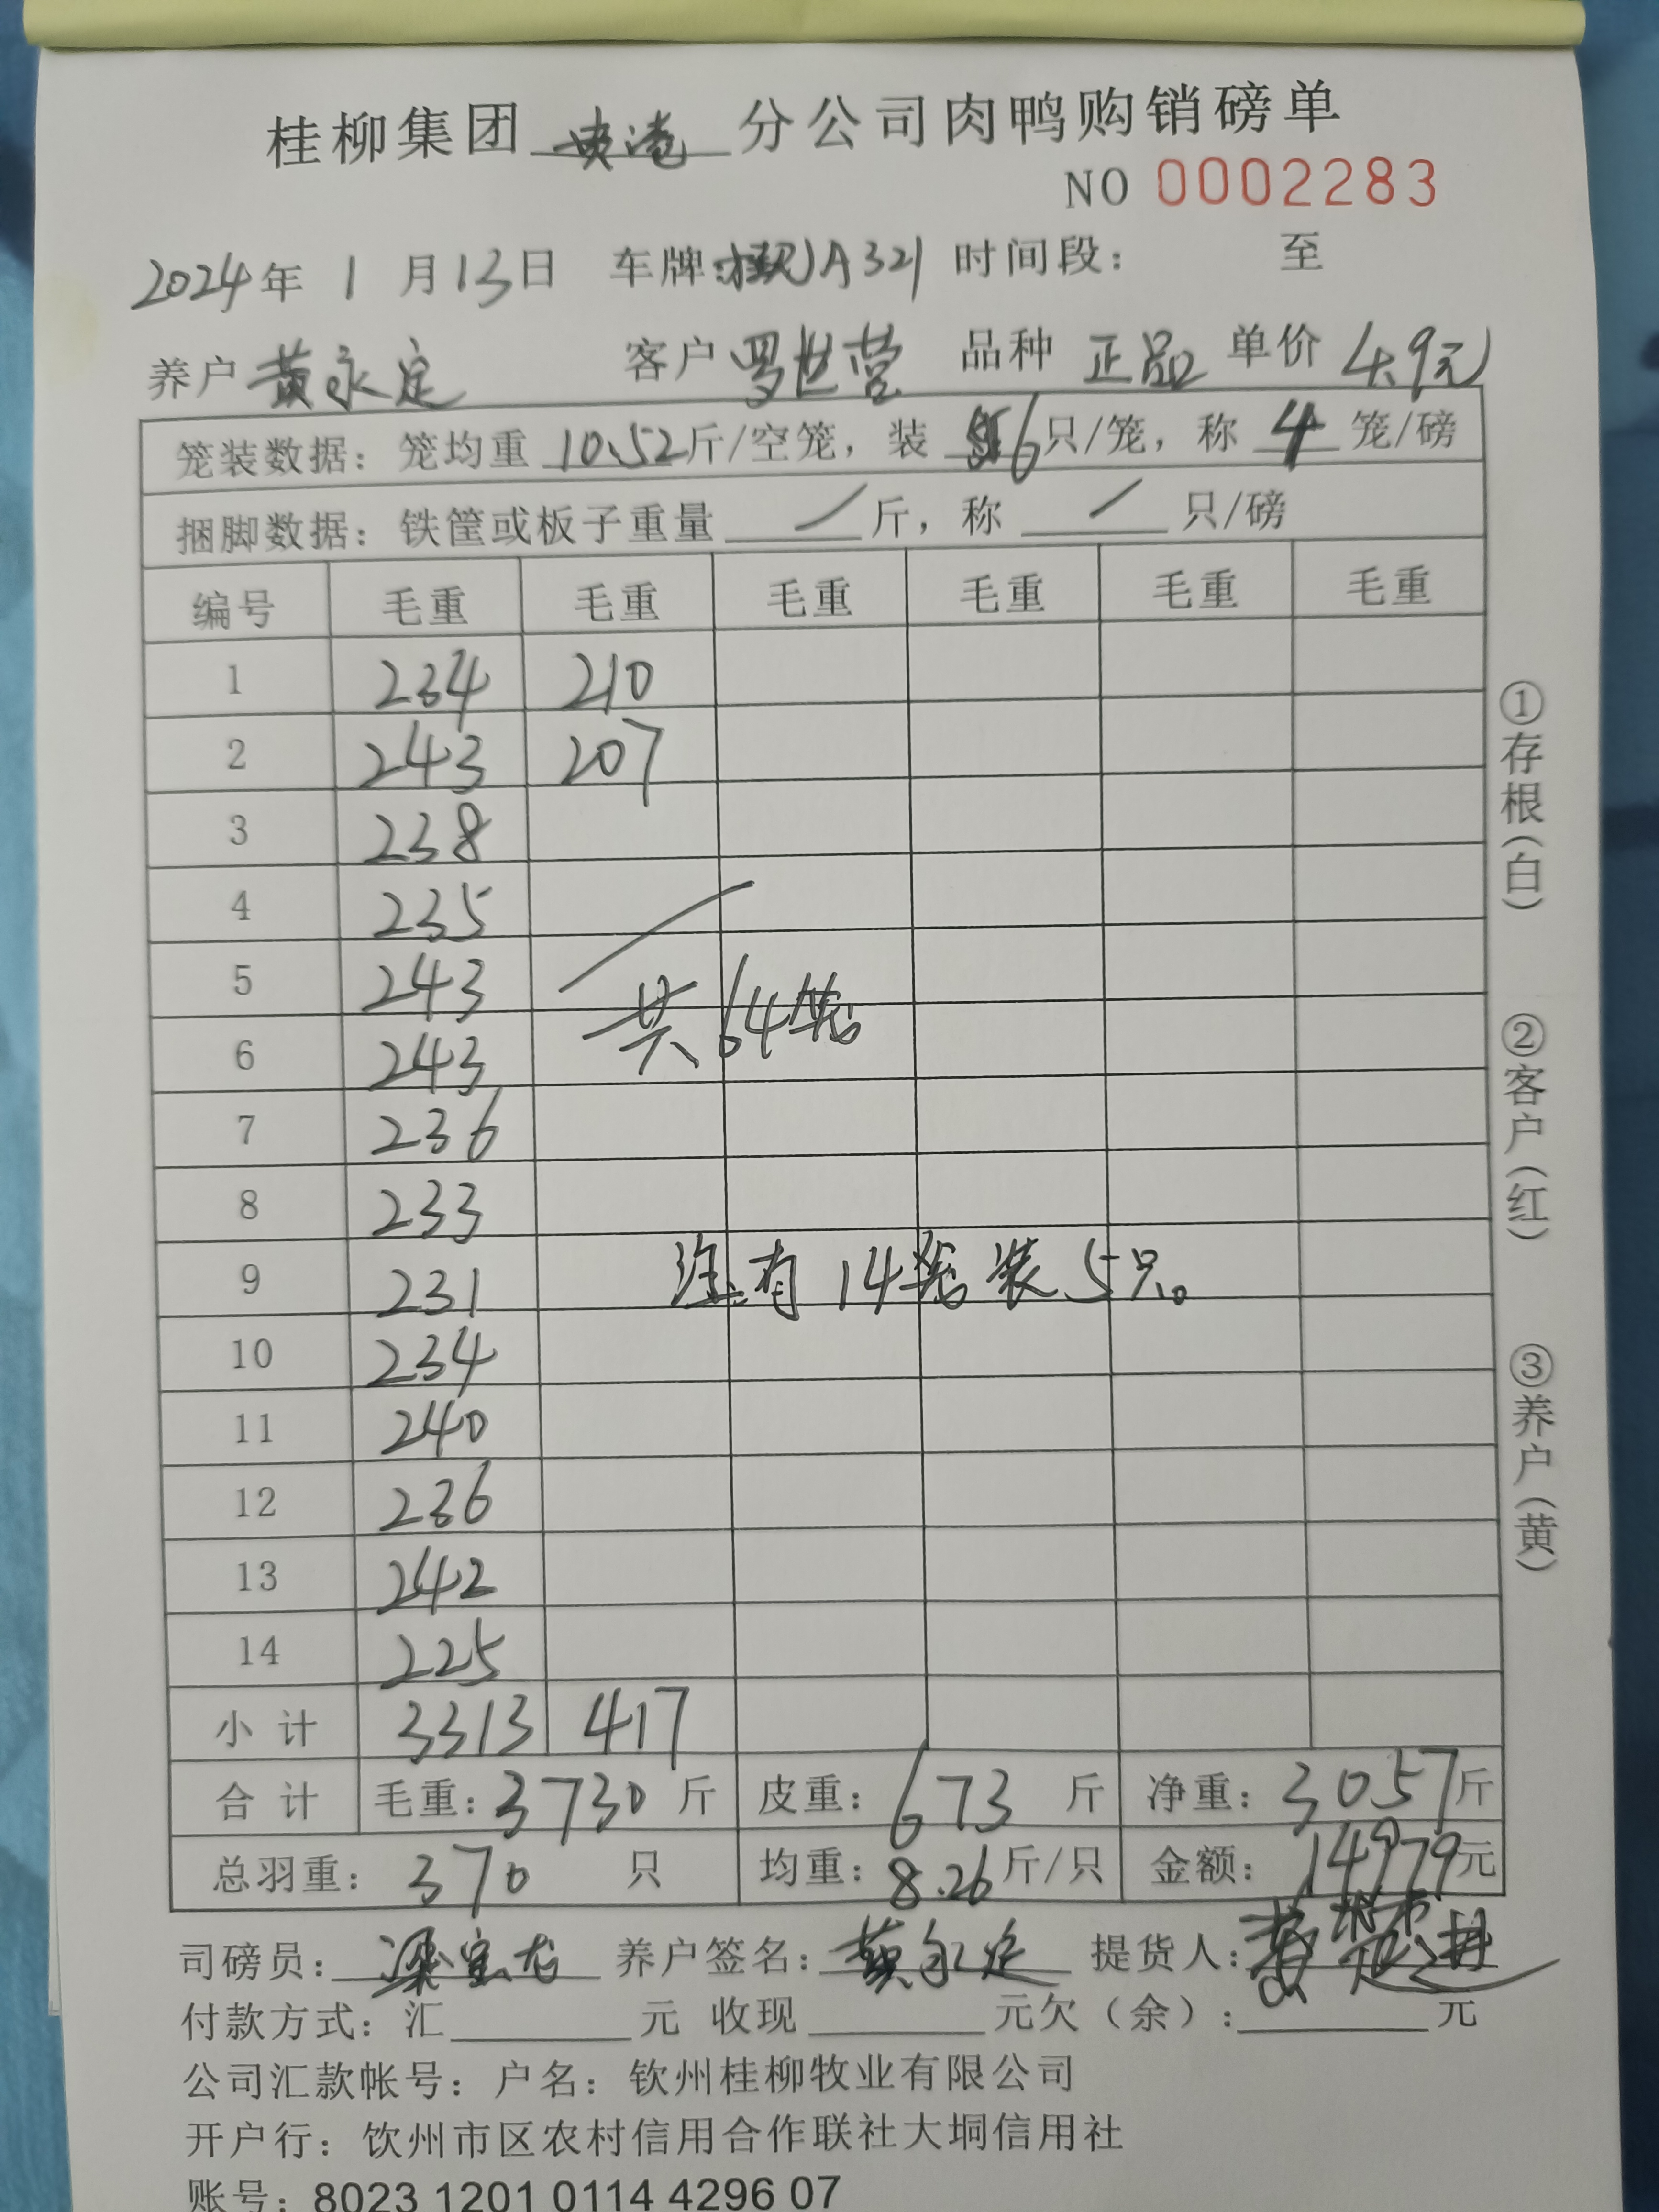 桂柳集团 分公司肉鸭购销磅单
NO 0002283
2024年 1 月13日 车牌: A321 时间段： 至
养户 黄永定 客户 罗世营 品种 正品 单价 4.9元
笼装数据：笼均重 10.52斤/空笼，装 6只/笼，称 4 笼/磅
捆脚数据：铁筐或板子重量 / 斤，称 / 只/磅
编号 毛重 毛重 毛重 毛重 毛重 毛重
1 234 210
2 243 207
3 238
4 235
5 243
共64笼
6 243
7 236
8 233
9 231
注:有14笼装5只。
10 234
11 240
12 236
13 242
14 225
小 计 3313 417
合 计 毛重：3730 斤 皮重：673 斤 净重：3057斤
总羽重：370 只 均重：8.26斤/只 金额：14979元
司磅员：梁宝龙 养户签名：黄永定 提货人：
付款方式：汇 元 收现 元欠（余）： 元
公司汇款帐号：户名：钦州桂柳牧业有限公司
开户行：钦州市区农村信用合作联社大垌信用社
账号：8023 1201 0114 4296 07
①存根（白） ②客户（红） ③养户（黄）